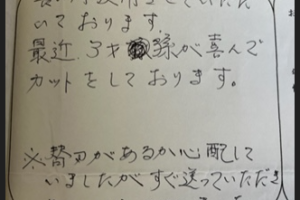 いております。
最近、3才孫が喜んで
カットをしております。
※替刃があるか心配して
いましたがすぐ送っていただき